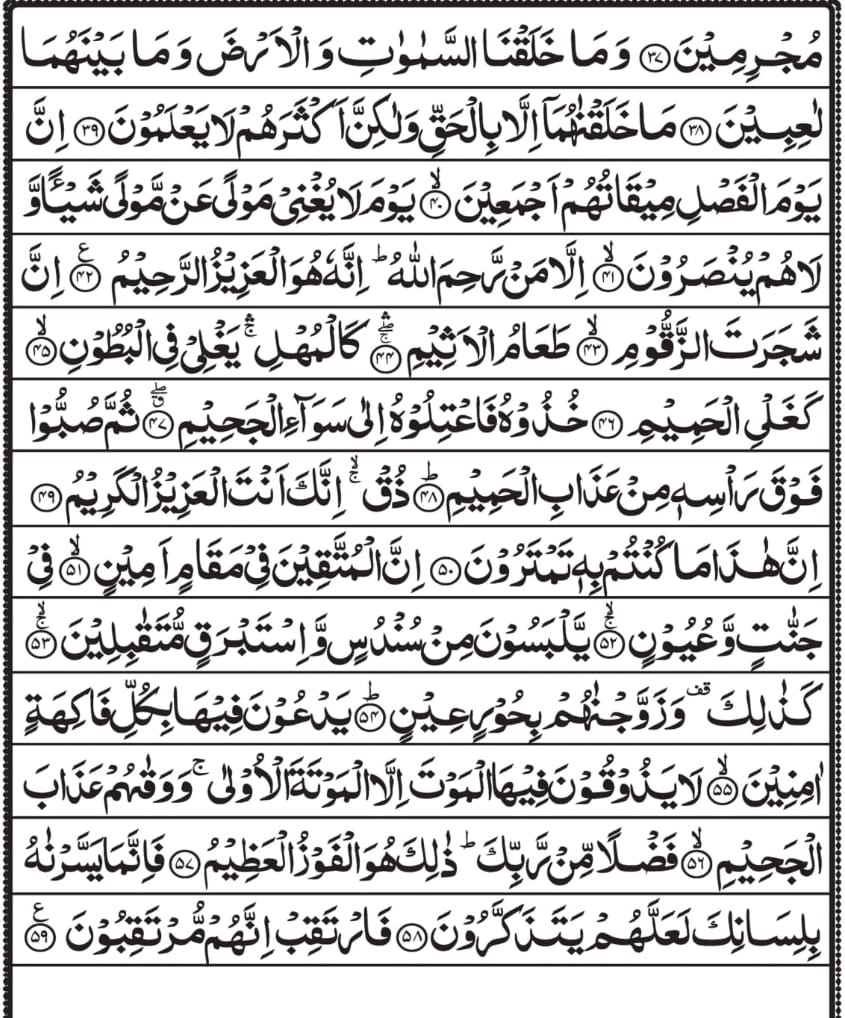 مُجۡرِمِيۡنَ ﴿۳۷﴾ وَمَا خَلَقۡنَا السَّمٰوٰتِ وَالۡاَرۡضَ وَمَا بَيۡنَهُمَا
لٰعِبِيۡنَ ﴿۳۸﴾ مَا خَلَقۡنٰهُمَاۤ اِلَّا بِالۡحَقِّ وَلٰكِنَّ اَكۡثَرَهُمۡ لَا يَعۡلَمُوۡنَ ﴿۳۹﴾ اِنَّ
يَوۡمَ الۡفَصۡلِ مِيۡقَاتُهُمۡ اَجۡمَعِيۡنَۙ ﴿۴۰﴾ يَوۡمَ لَا يُغۡنِىۡ مَوۡلًى عَنۡ مَّوۡلًى شَيۡـًٔا وَّ
لَا هُمۡ يُنۡصَرُوۡنَۙ ﴿۴۱﴾ اِلَّا مَنۡ رَّحِمَ اللّٰهُ ؕ اِنَّهٗ هُوَ الۡعَزِيۡزُ الرَّحِيۡمُ ﴿۴۲﴾ ع اِنَّ
شَجَرَتَ الزَّقُّوۡمِۙ ﴿۴۳﴾ طَعَامُ الۡاَثِيۡمِ ۛۚ ۖ ﴿۴۴﴾ كَالۡمُهۡلِ ۛۚ يَغۡلِىۡ فِى الۡبُطُوۡنِۙ ﴿۴۵﴾
كَغَلۡىِ الۡحَمِيۡمِ ﴿۴۶﴾ خُذُوۡهُ فَاعۡتِلُوۡهُ اِلٰى سَوَآءِ الۡجَحِيۡمِ ۖ ق ﴿۴۷﴾ ثُمَّ صُبُّوۡا
فَوۡقَ رَاۡسِهٖ مِنۡ عَذَابِ الۡحَمِيۡمِؕ ﴿۴۸﴾ ذُقۡ ۙۚ اِنَّكَ اَنۡتَ الۡعَزِيۡزُ الۡكَرِيۡمُ ﴿۴۹﴾
اِنَّ هٰذَا مَا كُنۡتُمۡ بِهٖ تَمۡتَرُوۡنَ ﴿۵۰﴾ اِنَّ الۡمُتَّقِيۡنَ فِىۡ مَقَامٍ اَمِيۡنٍۙ ﴿۵۱﴾ فِىۡ
جَنّٰتٍ وَّعُيُوۡنٍ ۙۚ ﴿۵۲﴾ يَّلۡبَسُوۡنَ مِنۡ سُنۡدُسٍ وَّاِسۡتَبۡرَقٍ مُّتَقٰبِلِيۡنَ ۙۚ ﴿۵۳﴾
كَذٰلِكَ قف وَزَوَّجۡنٰهُمۡ بِحُوۡرٍ عِيۡنٍؕ ﴿۵۴﴾ يَدۡعُوۡنَ فِيۡهَا بِكُلِّ فَاكِهَةٍ
اٰمِنِيۡنَۙ ﴿۵۵﴾ لَا يَذُوۡقُوۡنَ فِيۡهَا الۡمَوۡتَ اِلَّا الۡمَوۡتَةَ الۡاُوۡلٰى ۚ وَوَقٰٮهُمۡ عَذَابَ
الۡجَحِيۡمِۙ ﴿۵۶﴾ فَضۡلًا مِّنۡ رَّبِّكَ ؕ ذٰلِكَ هُوَ الۡفَوۡزُ الۡعَظِيۡمُ ﴿۵۷﴾ فَاِنَّمَا يَسَّرۡنٰهُ
بِلِسَانِكَ لَعَلَّهُمۡ يَتَذَكَّرُوۡنَ ﴿۵۸﴾ فَارۡتَقِبۡ اِنَّهُمۡ مُّرۡتَقِبُوۡنَ ﴿۵۹﴾ ع